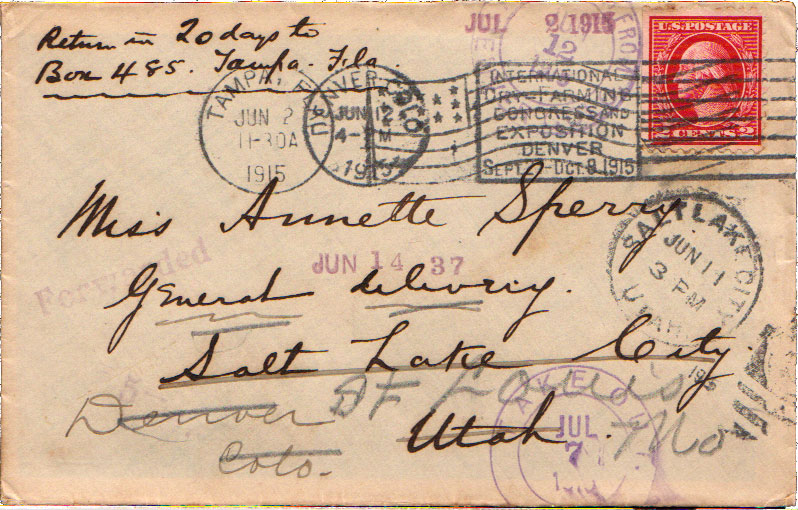 Return in 20 days to
Box 485. Tampa. Fla.
JUL 2 1915
12
U.S. POSTAGE
2 CENTS 2
TAMPA, FLA.
JUN 2
11-30A
1915
DENVER COLO
JUN 12
4-PM
1915
INTERNATIONAL
DRY-FARMING
CONGRESS AND
EXPOSITION
DENVER
SEPT.27-OCT.9,1915
Miss Annette Sperry
SALT LAKE CITY
JUN 11
3 PM
UTAH
Forwarded
JUN 14 37
General delivery.
Salt Lake City.
Utah.
Denver
Colo.
St Louis
Mo
JUL
7